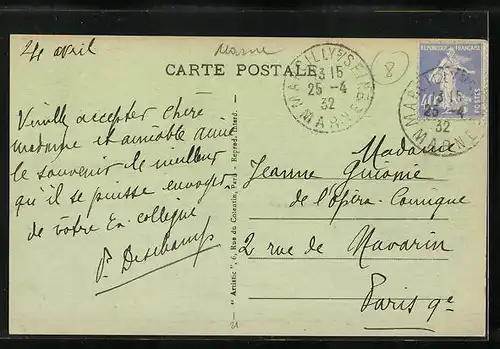 24 avril
Marne
CARTE POSTALE
MARCILLY S/ SEINE
3 15
25 -4
32
MARNE
8
RÉPUBLIQUE FRANÇAISE
POSTES
40
MARCILLY S/ SEINE
3 15
25 -4
32
MARNE
accepter chère
madame et aimable amie
le souvenir le meilleur
qu'il se puisse envoyer,
de votre Ex. collègue
P. Deschamps
"Artistic", 6, Rue du Cotentin, Paris - Reprod. Interd.
21
Madame
Jeanne
de l'Opéra-Comique
2 rue de Navarin
Paris 9e